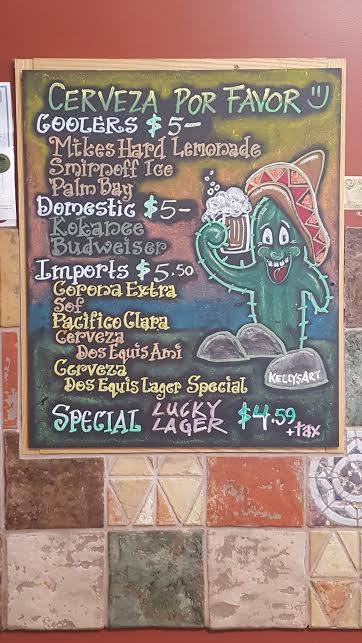 CERVEZA POR FAVOR
COOLERS $5—
Mikes Hard Lemonade
Smirnoff Ice
Palm Bay
Domestic $5—
Kokanee
Budweiser
Imports $5.50
Corona Extra
Sol
Pacifico Clara
Cerveza
Dos Equis Ami
Cerveza
Dos Equis Lager Special
KELLYSART
SPECIAL LUCKY LAGER $4.59 +tax